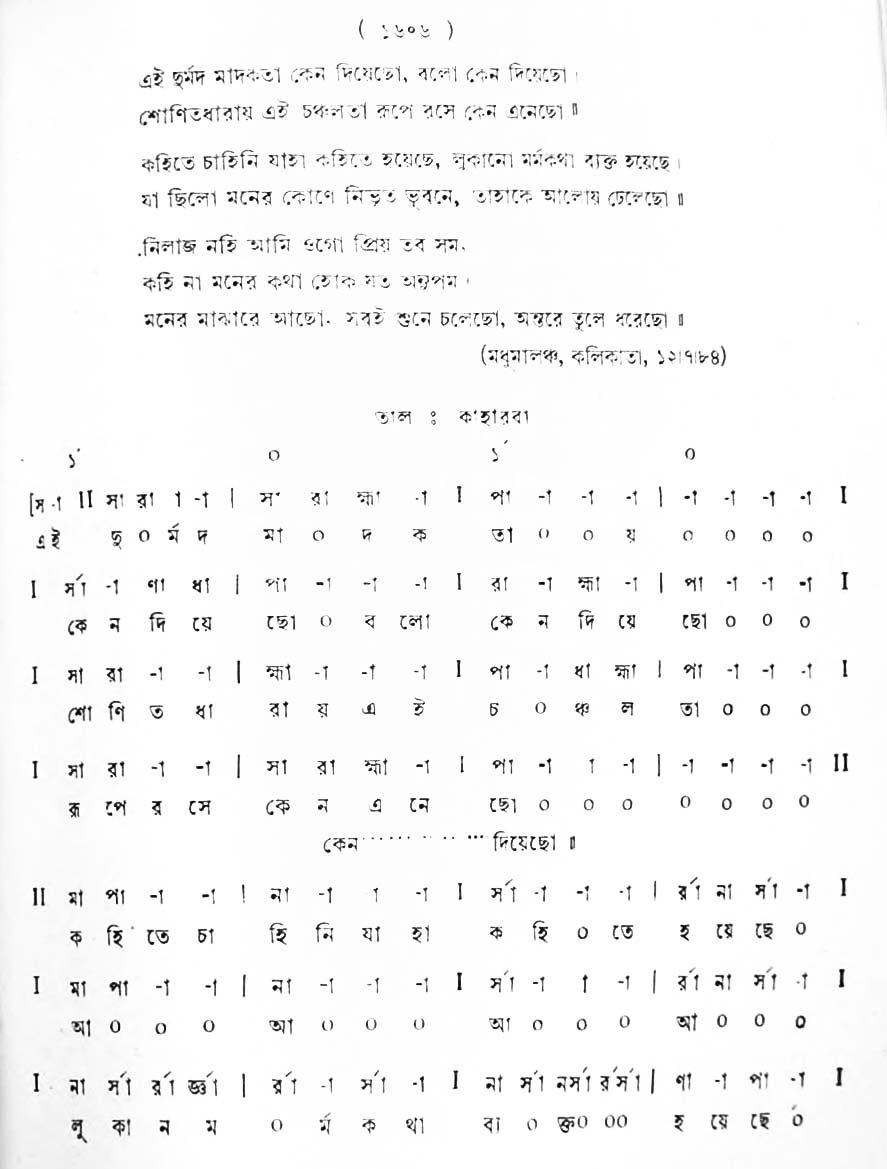 ( ১৬০৬ )
এই দুর্মদ মাদকতা কেন দিয়েছো, বলো কেন দিয়েছো।
শোণিতধারায় এই চঞ্চলতা রূপে রসে কেন এনেছো॥
কহিতে চাহিনি যাহা কহিতে হয়েছে, লুকানো মর্মকথা ব্যক্ত হয়েছে।
যা ছিলো মনের কোণে নিভৃত ভুবনে, তাহাকে আলোয় ঢেলেছো॥
নিলাজ নহি আমি ওগো প্রিয় তব সম,
কহি না মনের কথা হোক যত অনুপম।
মনের মাঝারে আছো, সবই শুনে চলেছো, অন্তরে তুলে ধরেছো॥
(মধুমালঞ্চ, কলিকাতা, ১২।৭।৮৪)
তাল ঃ ক'হারবা
১´ ০ ১´ ০
[স -া II সা রা া -া | সা রা হ্মা -া I পা -া -া -া | -া -া -া -া I
এই দু ০ র্ম দ মা ০ দ ক তা ০ ০ য় ০ ০ ০ ০
I র্সা -া ণা ধা | পা -া -া -া I রা -া হ্মা -া | পা -া -া -া I
কে ন দি য়ে ছো ০ ব লো কে ন দি য়ে ছো ০ ০ ০
I সা রা -া -া | হ্মা -া -া -া I পা -া ধা হ্মা | পা -া -া -া I
শো ণি ত ধা রা য় এ ই চ ০ ঞ্চ ল তা ০ ০ ০
I সা রা -া -া | সা রা হ্মা -া I পা -া া -া | -া -া -া -া II
রূ পে র সে কে ন এ নে ছো ০ ০ ০ ০ ০ ০ ০
কেন ········· দিয়েছো॥
II মা পা -া -া | না -া া -া I র্সা -া -া -া | র্রা না র্সা -া I
ক হি তে চা হি নি যা হা ক হি ০ তে হ য়ে ছে ০
I মা পা -া -া | না -া -া -া I র্সা -া া -া | র্রা না র্সা -া I
আ ০ ০ ০ আ ০ ০ ০ আ ০ ০ ০ আ ০ ০ ০
I না র্সা র্রা র্জ্ঞা | র্রা -া র্সা -া I না র্সা নর্সা র্রর্সা | ণা -া পা -া I
লু কা ন ম ০ র্ম ক থা ব্য ০ ক্ত০ ০০ হ য়ে ছে ০